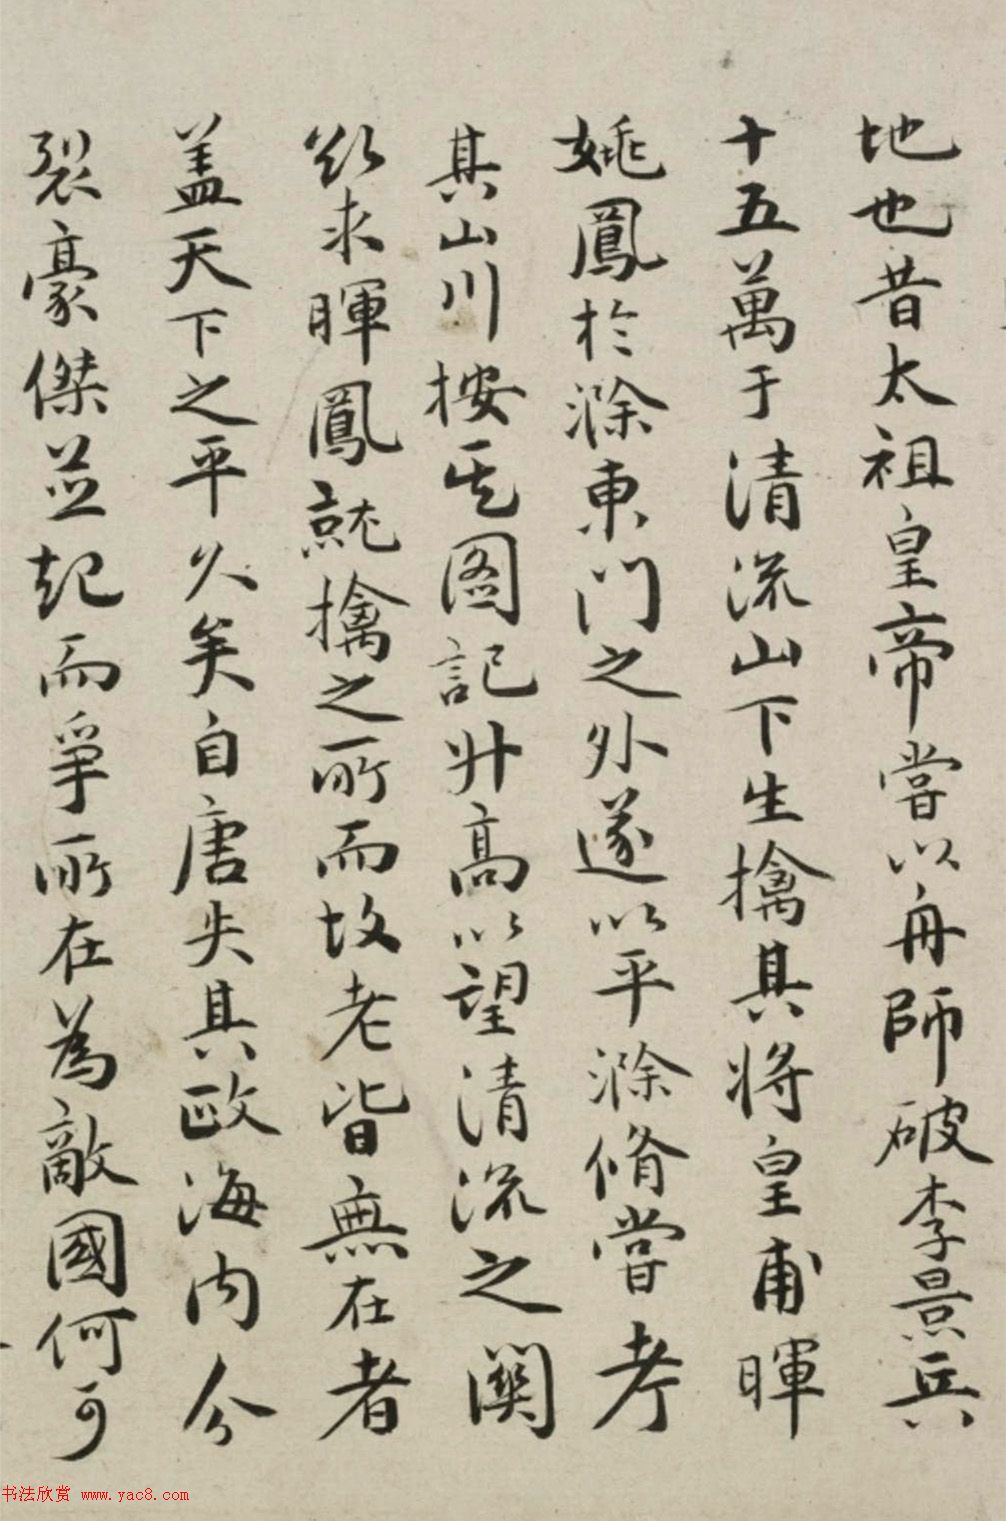 地也昔太祖皇帝嘗以舟師破李景兵
十五萬于清流山下生擒其將皇甫暉
姚鳳於滁東門之外遂以平滁脩嘗考
其山川按其图記升高以望清流之關
欲求暉鳳就擒之所而故老皆無在者
盖天下之平久矣自唐失其政海內分
裂豪傑並起而爭所在為敵國何可
书法欣赏 www.yac8.com